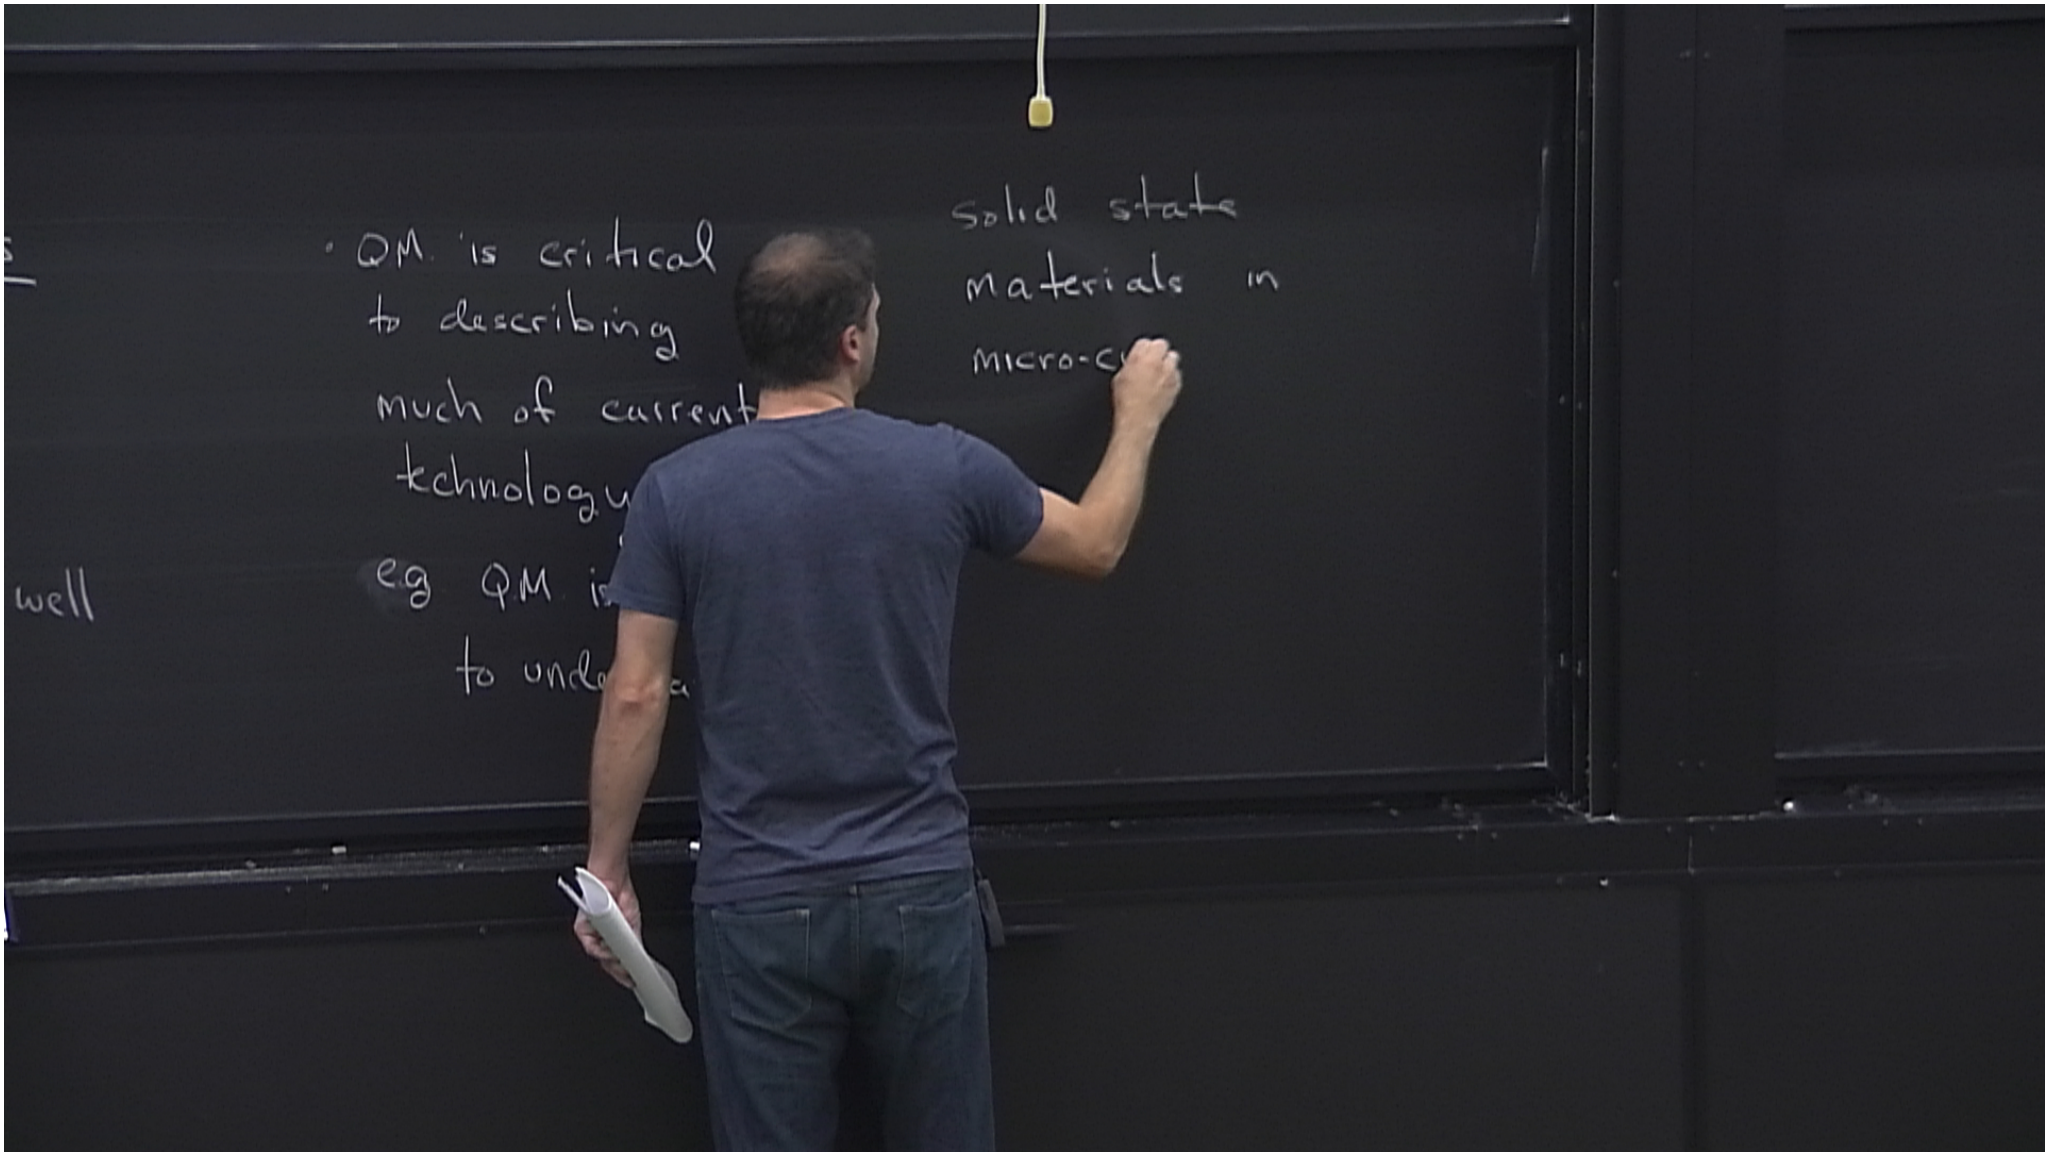 well
· QM is critical
to describing
much of current
technology
e.g QM is
to
solid state
materials in
micro-c